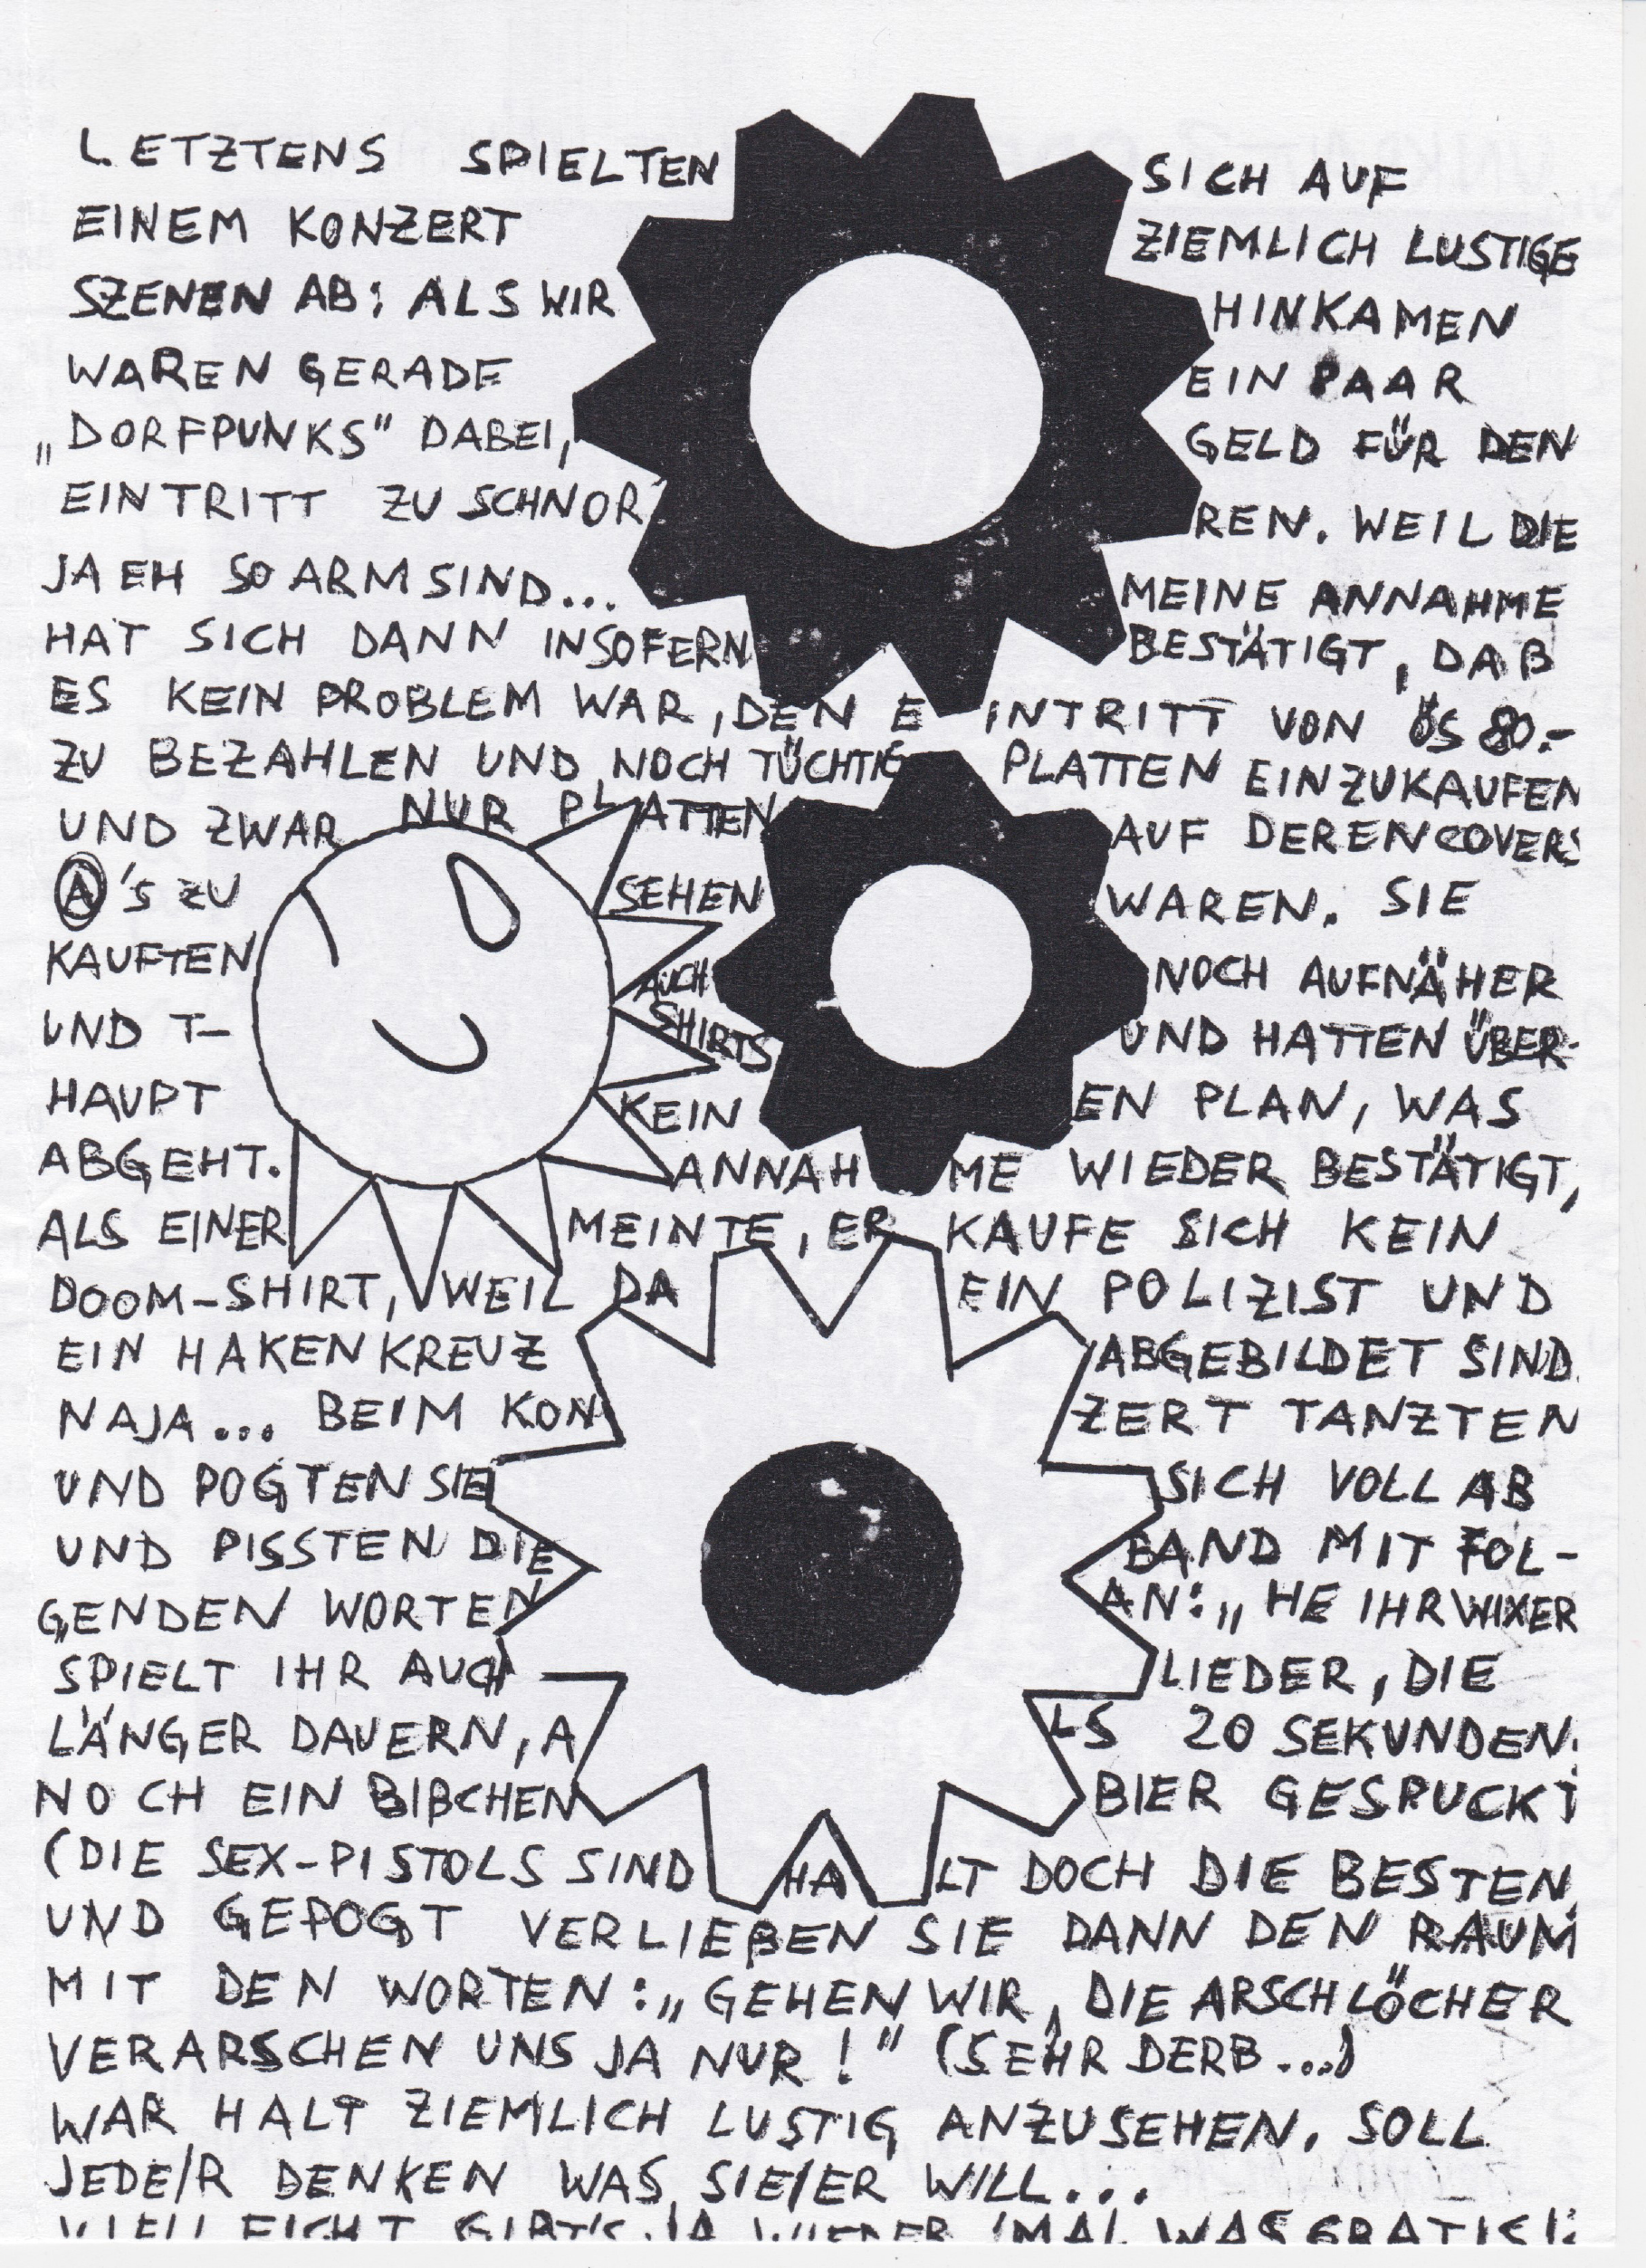 LETZTENS SPIELTEN SICH AUF
EINEM KONZERT ZIEMLICH LUSTIGE
SZENEN AB: ALS WIR HINKAMEN
WAREN GERADE EIN PAAR
„DORFPUNKS" DABEI, GELD FÜR DEN
EINTRITT ZU SCHNOR REN. WEIL DIE
JA EH SO ARM SIND... MEINE ANNAHME
HAT SICH DANN INSOFERN BESTÄTIGT, DAß
ES KEIN PROBLEM WAR, DEN EINTRITT VON ÖS 80.-
ZU BEZAHLEN UND NOCH TÜCHTIG PLATTEN EINZUKAUFEN
UND ZWAR NUR PLATTEN AUF DEREN COVERS
Ⓐ's ZU SEHEN WAREN. SIE
KAUFTEN AUCH NOCH AUFNÄHER
UND T-SHIRTS UND HATTEN ÜBER-
HAUPT KEIN EN PLAN, WAS
ABGEHT. ANNAHME WIEDER BESTÄTIGT,
ALS EINER MEINTE, ER KAUFE SICH KEIN
DOOM-SHIRT, WEIL DA EIN POLIZIST UND
EIN HAKENKREUZ ABGEBILDET SIND.
NAJA... BEIM KON ZERT TANZTEN
UND POGTEN SIE SICH VOLL AB
UND PISSTEN DIE BAND MIT FOL-
GENDEN WORTEN AN: „HE IHR WIXER
SPIELT IHR AUCH LIEDER, DIE
LÄNGER DAUERN, ALS 20 SEKUNDEN.
NOCH EIN BIßCHEN BIER GESPUCKT
(DIE SEX-PISTOLS SIND HALT DOCH DIE BESTEN
UND GEPOGT VERLIEßEN SIE DANN DEN RAUM
MIT DEN WORTEN: „GEHEN WIR, DIE ARSCHLÖCHER
VERARSCHEN UNS JA NUR!" (SEHR DERB...)
WAR HALT ZIEMLICH LUSTIG ANZUSEHEN, SOLL
JEDE/R DENKEN WAS SIE/ER WILL...
VIELLEICHT GIBT'S JA WIEDER 'MAL WAS GRATIS!